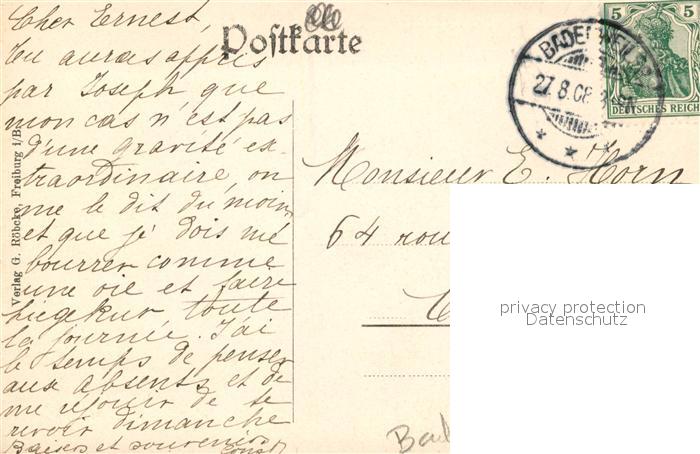 Cher Ernest,
Tu auras appris
par Joseph que
mon cas n'est pas
d'une gravité ex-
traordinaire, on
me le dit du moins
et que je dois me
bourrer comme
une oie et faire
Liegekur toute
la journée. J'ai
le temps de penser
aux absents et de
me réjouir de te
revoir dimanche
Baisers et souvenirs
Postkarte
5 5
DEUTSCHES REICH
27.8.08
Monsieur E. Horn
64 rou
Verlag G. Röbcke, Freiburg i/B.
privacy protection
Datenschutz
Bad